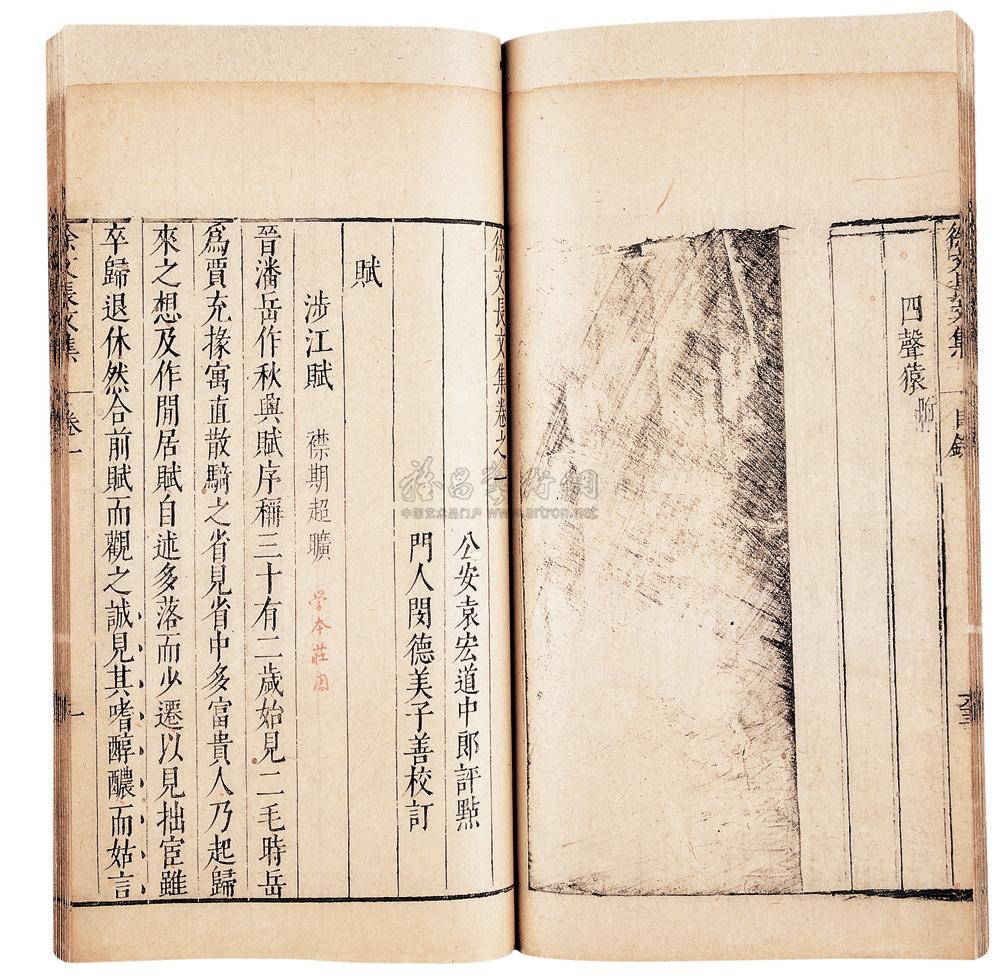 徐文長文集
目錄
四聲猿附
徐文長文集卷之一
公安袁宏道中郎評點
門人閔德美子善校訂
賦
涉江賦 襟期超曠 学本莊周
晉潘岳作秋興賦序稱三十有二歲始見二毛時岳
為賈充掾寓直散騎之省見省中多富貴人乃起歸
來之想及作閒居賦自述多落而少遷以見拙宦雖
卒歸退休然合前賦而觀之誠見其嗜醇醲而姑言
徐文長文集
卷一
一
中国艺术品门户 www.artron.net